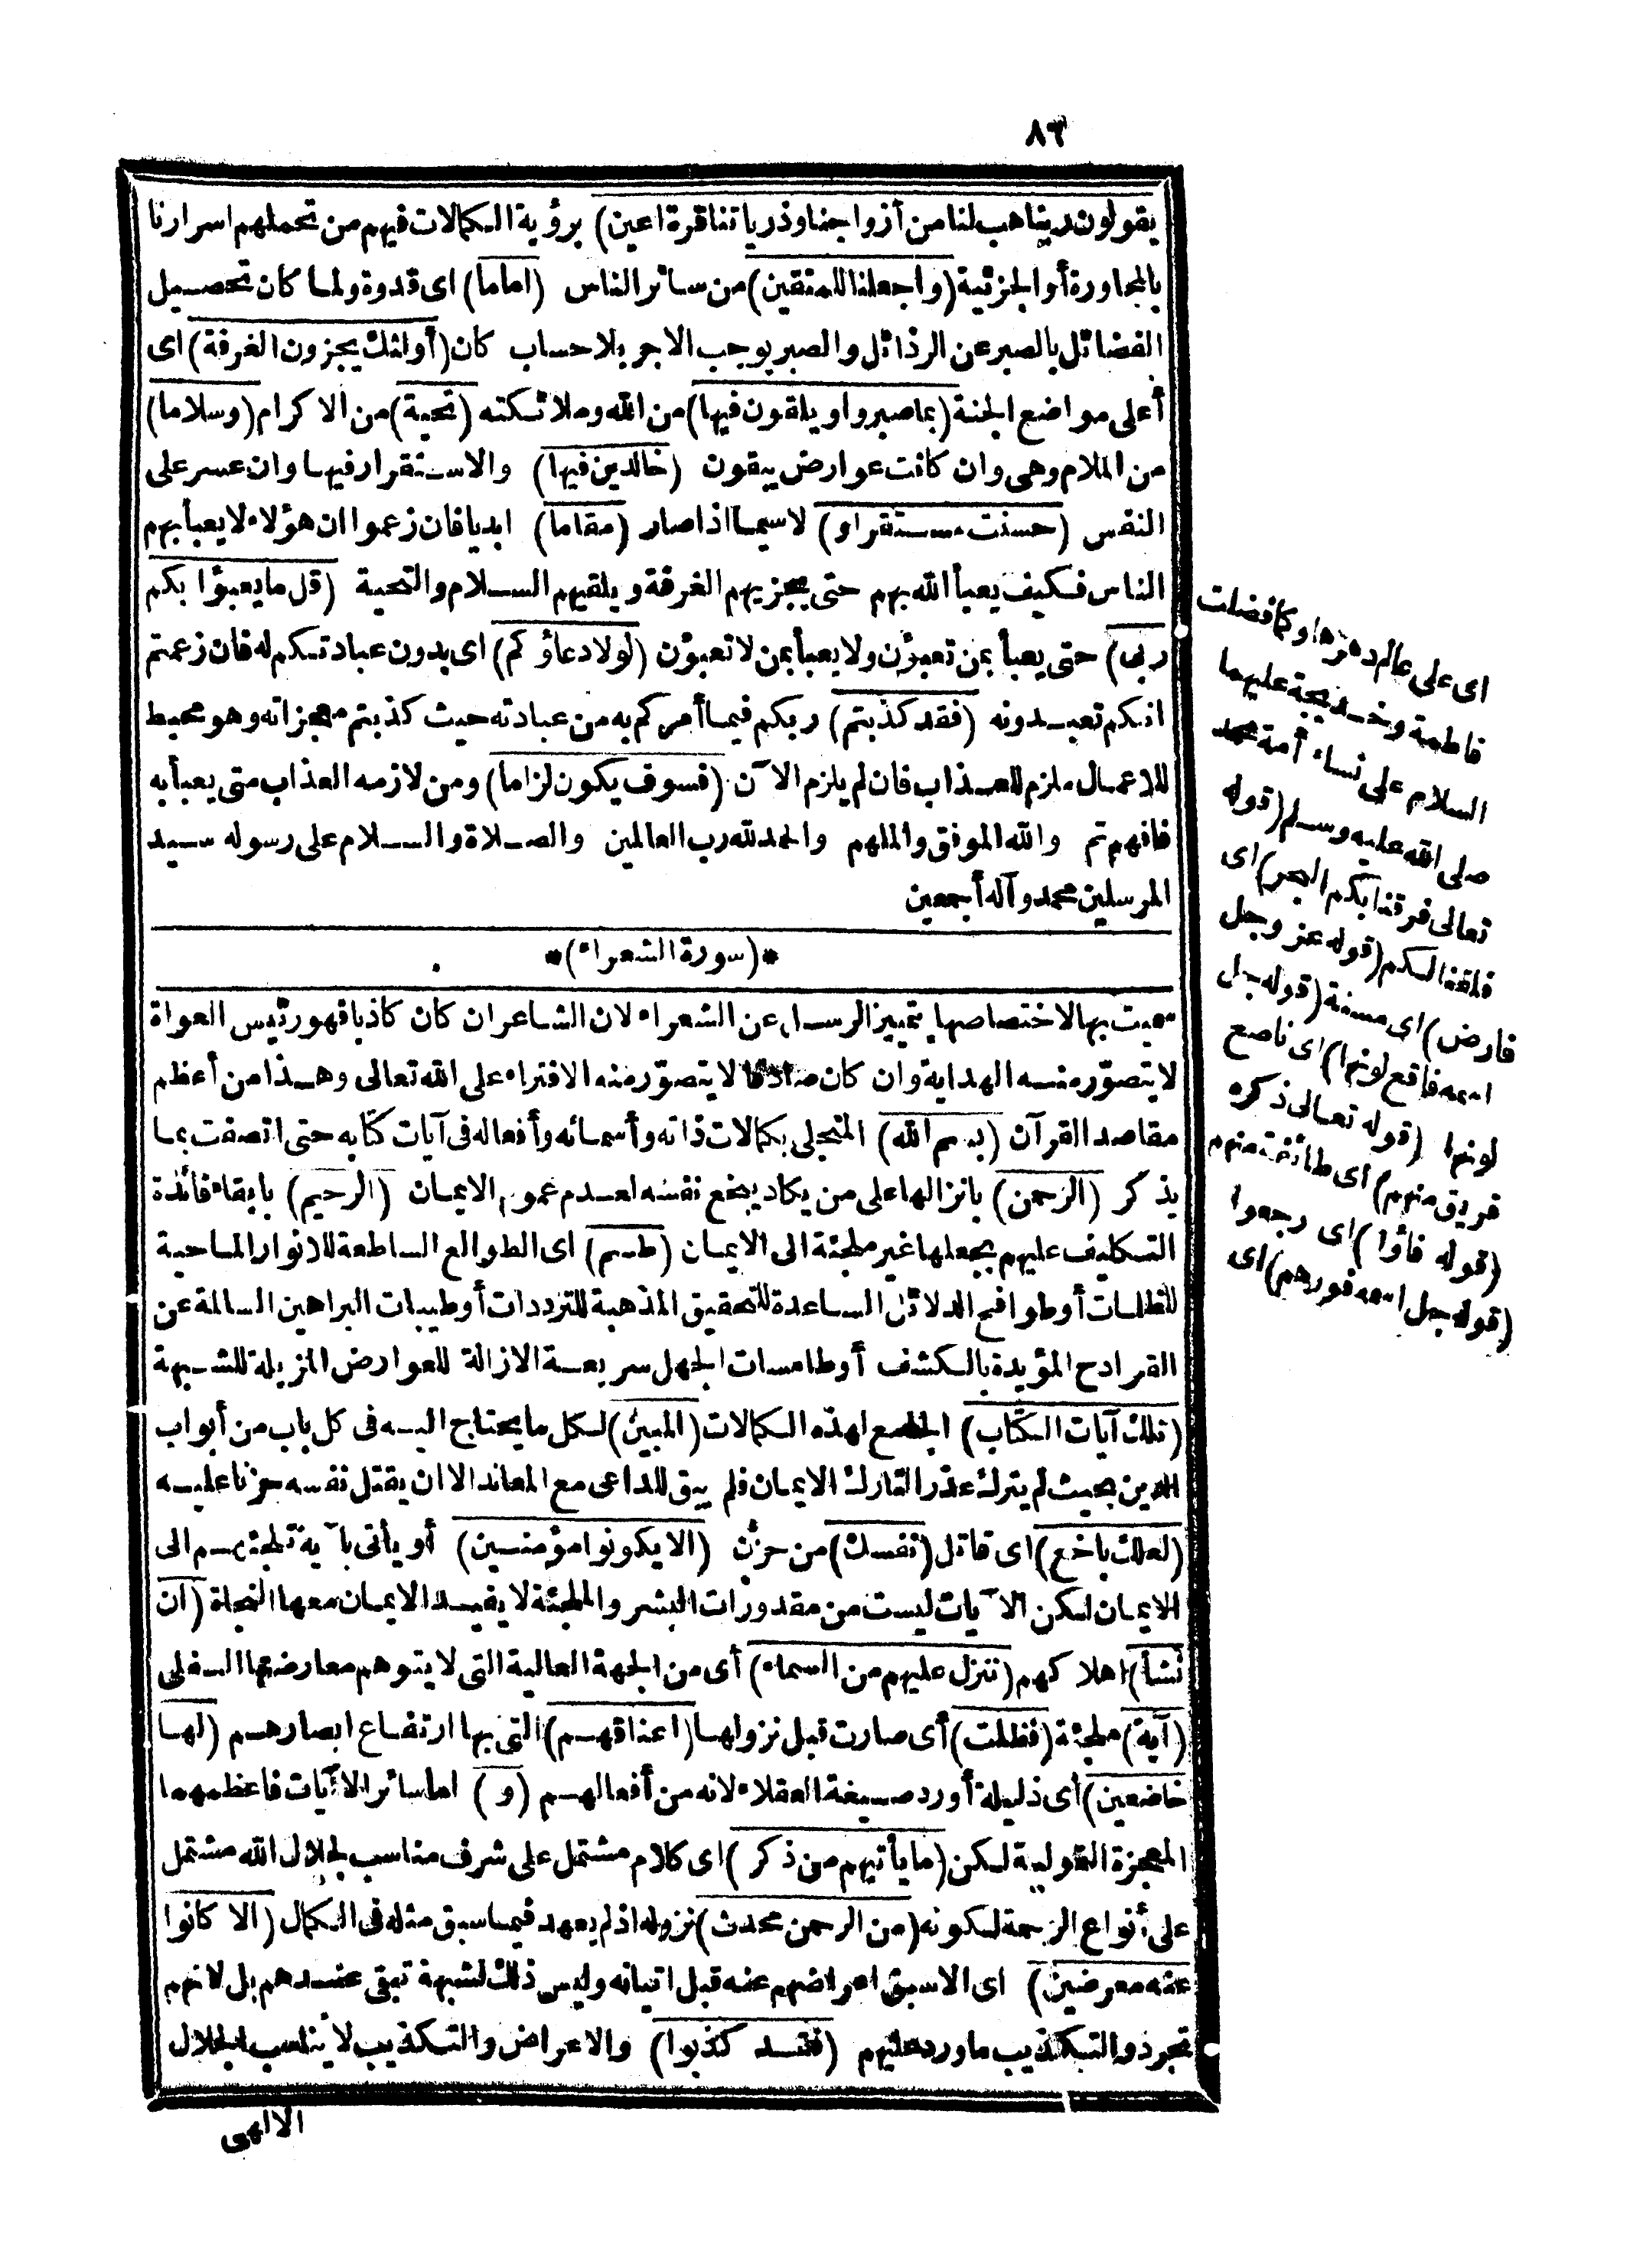 ٨٦
يقولون ربنا هب لنا من أزواجنا وذرياتنا قرة اعين) برؤية الكمالات فيهم من تحملهم اسرارنا
بالمجاورة أو الجزئية (واجعلنا للمتقين) من سائر الناس (اماما) اى قدوة ولما كان تحصيل
الفضائل بالصبر عن الرذائل والصبر يوجب الاجر بلا حساب كان (أولئك يجزون الغرفة) اى
أعلى مواضع الجنة (بما صبروا ويلقون فيها) من الله وملائكته (تحية) من الاكرام (وسلاما)
من الملام وهى وان كانت عوارض يبقون (خالدين فيها) والاستقرار فيها وان عسر على
النفس (حسنت مستقرا و) لاسيما اذا صار (مقاما) ابديا فان زعموا ان هؤلاء لا يعبأ بهم
الناس فكيف يعبأ الله بهم حتى يجزيهم الغرفة ويلقيهم السلام والتحية (قل ما يعبؤا بكم
ربى) حتى يعبأ بمن تعبؤن ولا يعبأ بمن لا تعبؤن (لولا دعاؤكم) اى بدون عبادتكم له فان زعمتم
انكم تعبدونه (فقد كذبتم) ربكم فيما أمركم به من عبادته حيث كذبتم معجزاته وهو محيط
للاعمال ملزم للعذاب فان لم يلزم الآن (فسوف يكون لزاما) ومن لازمه العذاب متى يعبأ به
فافهم تم والله الموفق والملهم والحمد لله رب العالمين والصلاة والسلام على رسوله سيد
المرسلين محمد وآله أجمعين
*(سورة الشعراء)*
سميت بها لاختصاصها بتمييز الرسل عن الشعراء لان الشاعر ان كان كاذبا فهو رئيس الغواة
لا يتصور منه الهداية وان كان صادقا لا يتصور منه الافتراء على الله تعالى وهذا من أعظم
مقاصد القرآن (بسم الله) المتجلى بكمالات ذاته وأسمائه وأفعاله فى آيات كتابه حتى اتصفت بما
يذكر (الرحمن) بانزالها على من يكاد يبخع نفسه لعدم عموم الايمان (الرحيم) بابقاء فائدة
التكليف عليهم بجعلها غير ملجئة الى الايمان (طسم) اى الطوالع الساطعة للانوار الماحية
للظلمات أو طوافح الدلائل المساعدة للتحقيق المذهبة للترددات أو طيبات البراهين السالمة عن
القوادح المؤيدة بالكشف أو طامسات الجهل سريعة الازالة للعوارض المزيلة للشبهة
(تلك آيات الكتاب) الجامع لهذه الكمالات (المبين) لكل ما يحتاج اليه فى كل باب من أبواب
الدين بحيث لم يترك عذرا لتارك الايمان فلم يبق للداعى مع المعاند الا ان يقتل نفسه حزنا عليه
(لعلك باخع) اى قاتل (نفسك) من حزن (الا يكونوا مؤمنين) أو يأتى بآية تلجئهم الى
الايمان لكن الآيات ليست من مقدورات البشر والملجئة لا يفيد الايمان معها النجاة (ان
نشأ) اهلاكهم (ننزل عليهم من السماء) أى من الجهة العالية التى لا يتوهم معارضتها السفلى
(آية) ملجئة (فظلت) أى صارت قبل نزولها (اعناقهم) التى بها ارتفاع ابصارهم (لها
خاضعين) أى ذليلة أورد صيغة العقلاء لانه من أفعالهم (و) اما سائر الآيات فاعظمها
المعجزة القولية لكن (ما يأتيهم من ذكر) اى كلام مشتمل على شرف مناسب لجلال الله مشتمل
على أنواع الرحمة لكونه (من الرحمن محدث) نزوله اذ لم يعهد فيما سبق مثله فى الكمال (الا كانوا
عنه معرضين) اى الا سبق اعراضهم عنه قبل اتيانه وليس ذلك لشبهة تبقى عندهم بل لانهم
تجردوا لتكذيب ما ورد عليهم (فقد كذبوا) والاعراض والتكذيب لا يناسب الجلال
الالهى
اى على عالم دهرها وكما فضلت
فاطمة وخديجة عليهما
السلام على نساء أمة محمد
صلى الله عليه وسلم (قوله
تعالى فرقنا بكم البحر) اى
فلقنا لكم (قوله عز وجل
فارض) اى مسنة (قوله جل
اسمه فاقع لونها) اى ناصع
لونها (قوله تعالى ذكره
فريق منهم) اى طائفة منهم
(قوله فاؤا) اى رجعوا
(قوله جل اسمه فورهم) اى